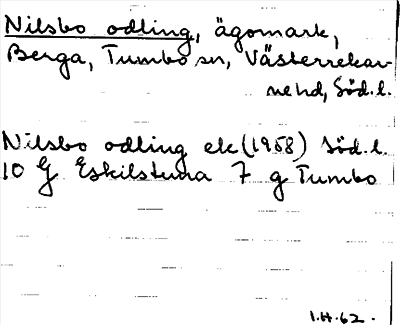 Nilsbo odling, ägomark,
Berga, Tumbo sn, Västerrekar-
ne hd, Söd.l.
Nilsbo odling ek (1958) Söd.l.
10 G Eskilstuna 7 g Tumbo
I.H.62.